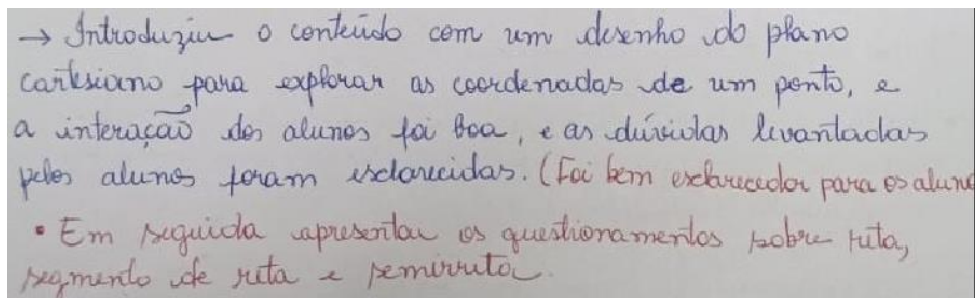 → Introduziu o conteúdo com um desenho do plano
cartesiano para explorar as coordenadas de um ponto, e
a interação dos alunos foi boa, e as dúvidas levantadas
pelos alunos foram esclarecidas. (Foi bem esclarecedor para os aluno
• Em seguida apresentou os questionamentos sobre reta,
segmento de reta e semirreta.